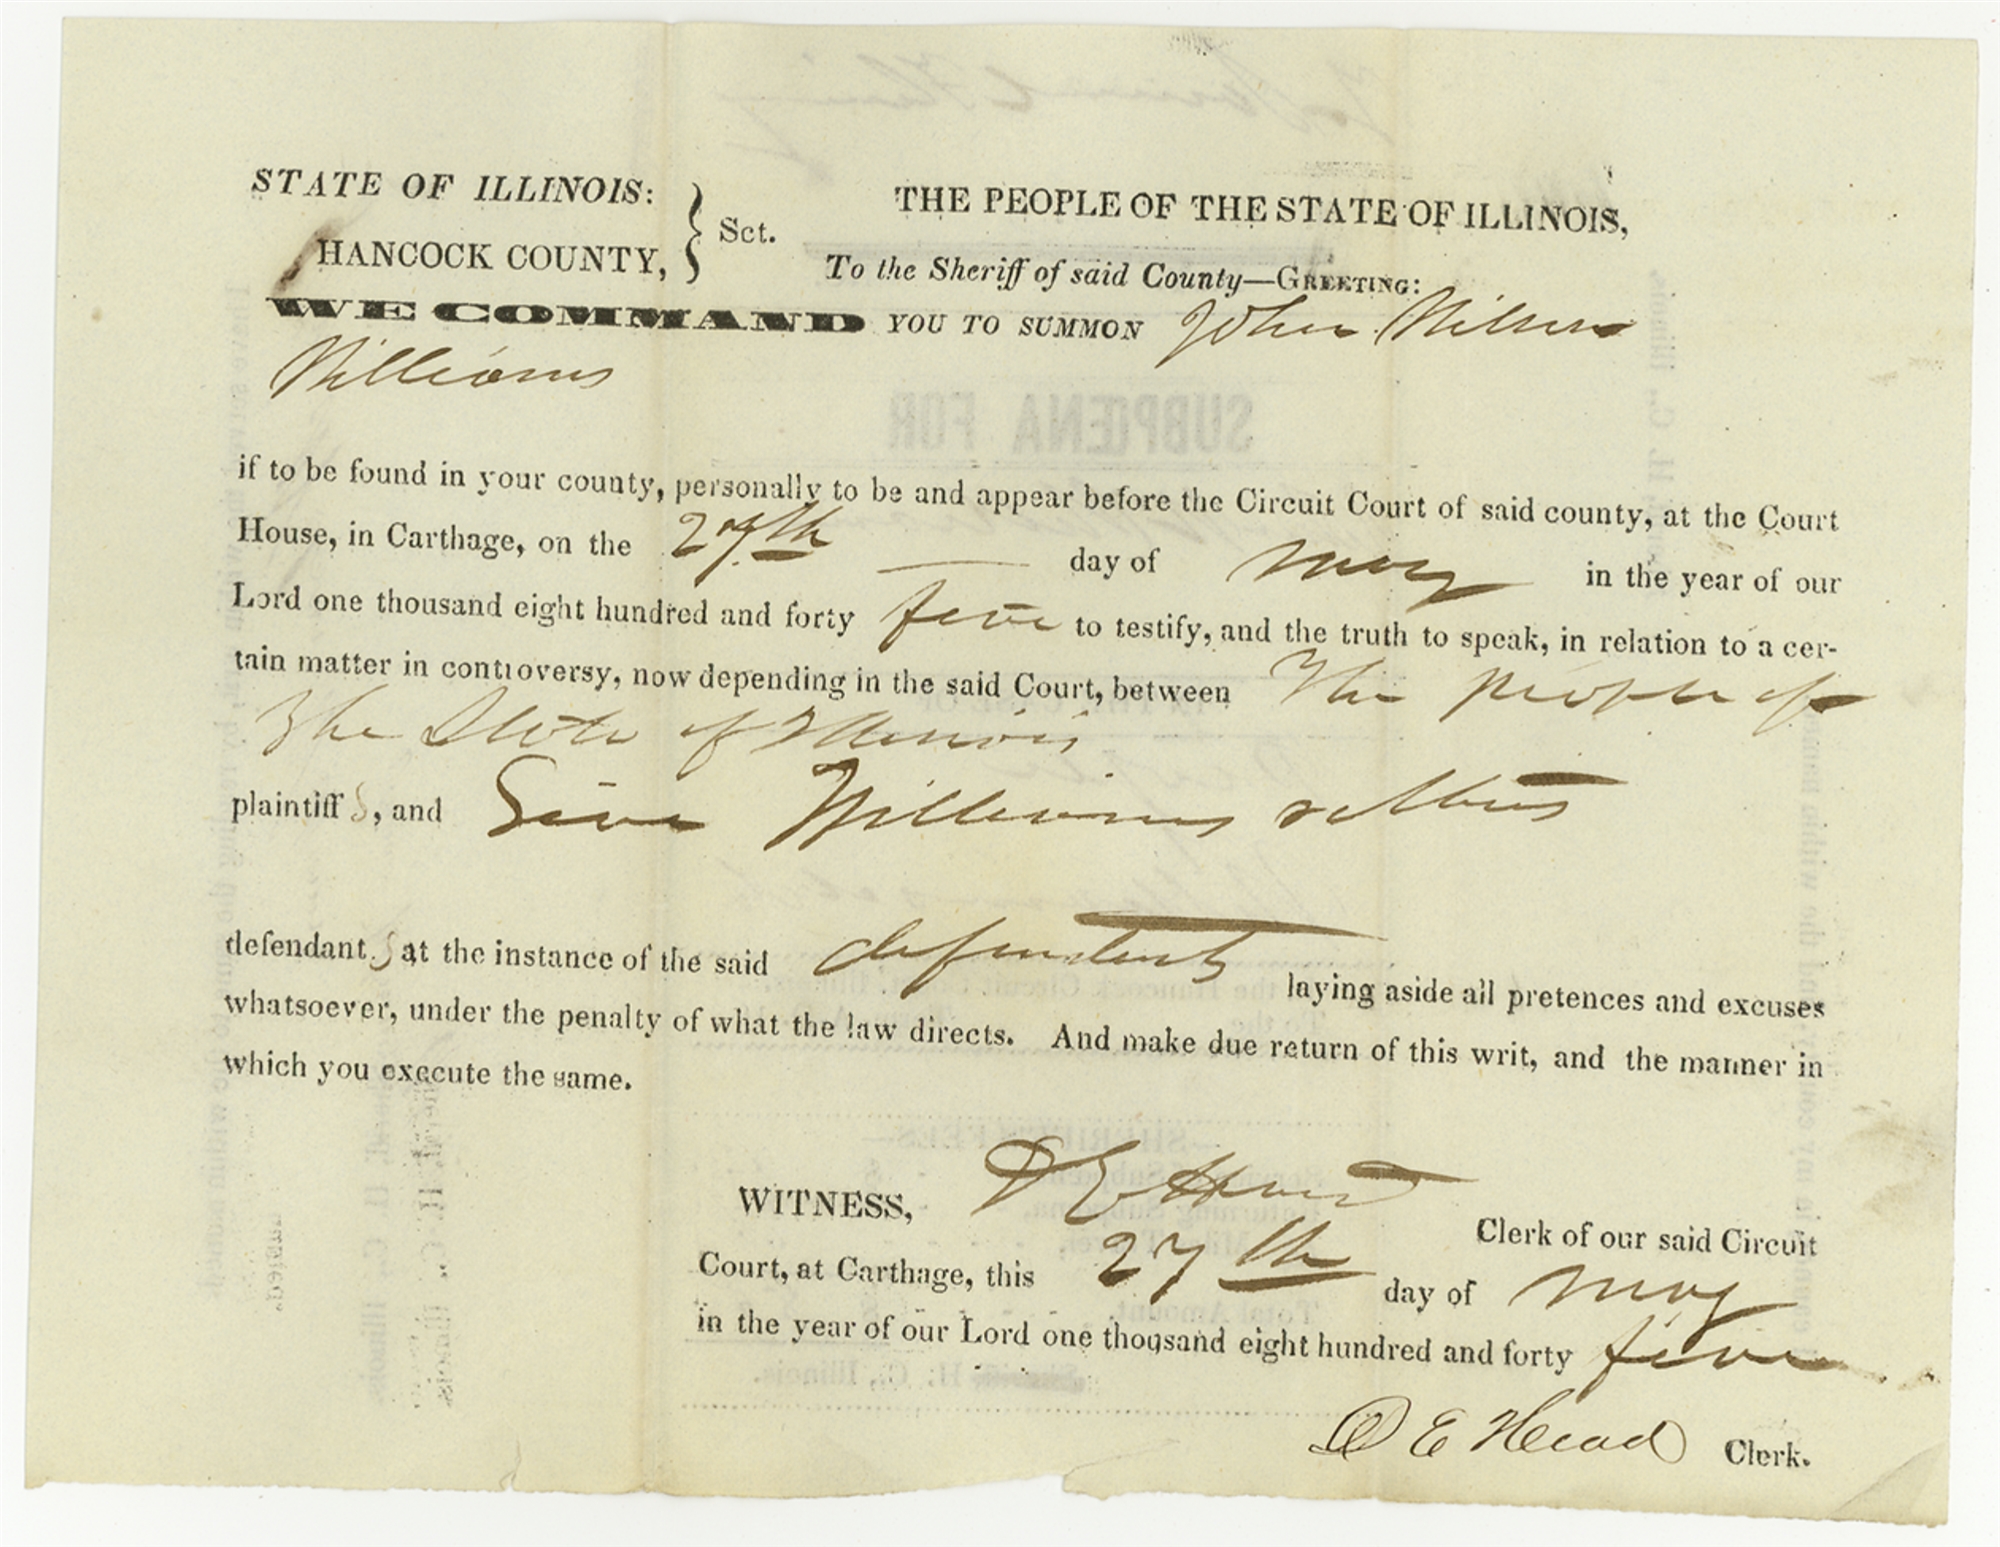 STATE OF ILLINOIS:
HANCOCK COUNTY, } Sct.
THE PEOPLE OF THE STATE OF ILLINOIS,
To the Sheriff of said County—GREETING:
WE COMMAND YOU TO SUMMON John Wilson
Williams
if to be found in your county, personally to be and appear before the Circuit Court of said county, at the Court
House, in Carthage, on the 27th day of May in the year of our
Lord one thousand eight hundred and forty five to testify, and the truth to speak, in relation to a cer-
tain matter in controversy, now depending in the said Court, between The People of
The State of Illinois
plaintiff s, and Levi Williams et al
defendant s at the instance of the said defendants laying aside all pretences and excuses
whatsoever, under the penalty of what the law directs. And make due return of this writ, and the manner in
which you execute the same.
WITNESS, D E Head Clerk of our said Circuit
Court, at Carthage, this 27th day of May
in the year of our Lord one thousand eight hundred and forty five
D E Head Clerk.
SUBPŒNA FOR